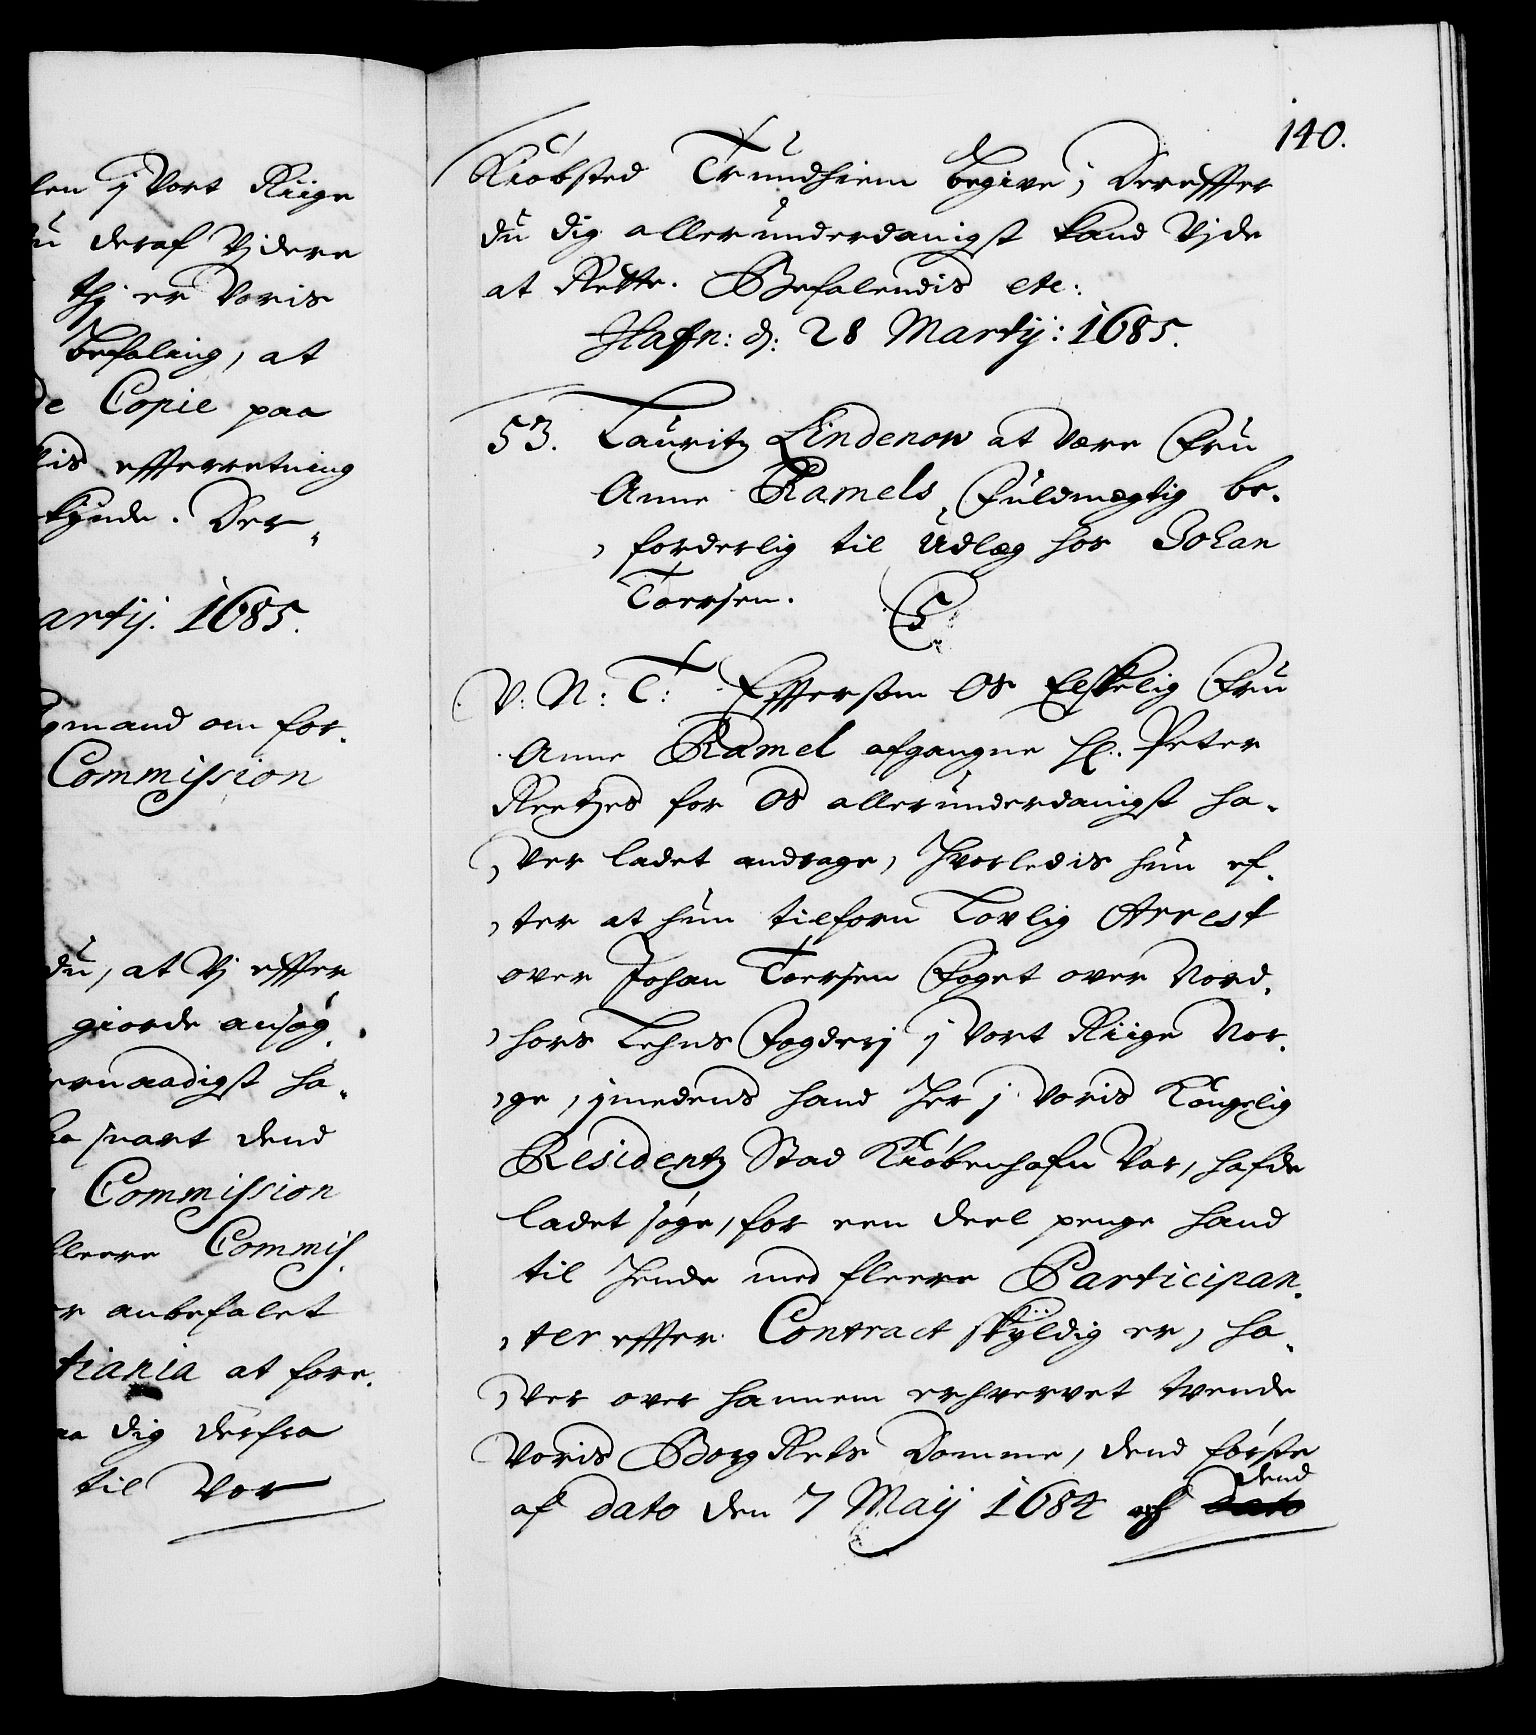 len j Vort Riige
du deraf Vjdere
thj er Voris
befaling, at
de Copie paa
lis efterretning
kynde. Der-
artij. 1685.
gmand om for-
Commission
du, at Vj efter
giorde ansøg-
ernaadigst ha-
snart dend
Commission
fleere Commis-
er anbefalet
tiania at fore-
dig derfra
til Vor
140.
Kiøbsted Trundhiem begive, Derefter
du dig allerunderdanigst kand Vjde
at Rette. Befalendis etc:
Hafn: d: 28 Martij: 1685.
53. Lauritz Lindenow at være Fru
Anne Ramels Fuldmegtig be-
forderlig til Udlæg hos Johan
Toersen.
C5
V. N: T: Eftersom Os Elskelig Fru
Anne Ramel afgangne Hr. Peter
Reetzes for Os allerunderdanigst ha-
ver ladet andrage, hvorledis hun ef-
ter at hun tilforn Lovlig Arrest
over Johan Toersen Foget over Nord-
hors Lehns Fogderj j Vort Riige Nor-
ge, jmedens hand her j Voris Kongelig
Residentz Stad Kiøbenhafn Var, hafde
ladet søge, for een deel penge hand
til hende med fleere Participan-
ter efter Contract skyldig er, ha-
ver over hannem erhvervet tvende
Voris Borg Rets Domme, dend første
af dato den 7 Maij 1684 och dend
dato